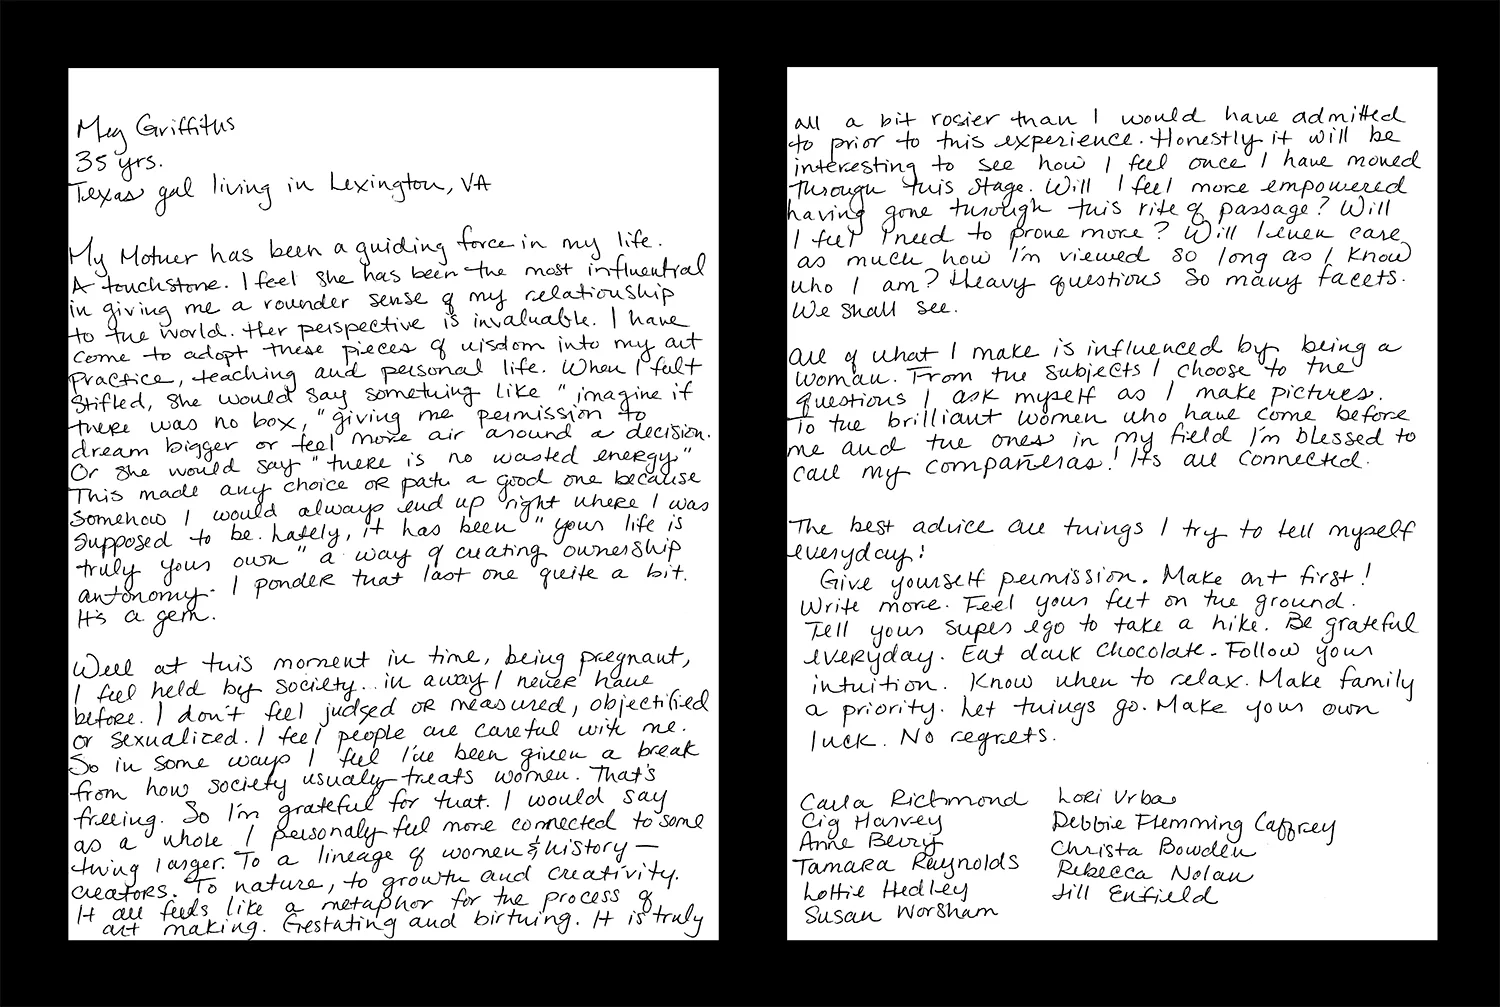 Meg Griffiths
35 yrs.
Texas gal living in Lexington, VA
My Mother has been a guiding force in my life.
A touchstone. I feel she has been the most influential
in giving me a rounder sense of my relationship
to the world. Her perspective is invaluable. I have
come to adopt these pieces of wisdom into my art
practice, teaching and personal life. When I felt
stifled, she would say something like "imagine if
there was no box," giving me permission to
dream bigger or feel more air around a decision.
Or she would say "there is no wasted energy"
This made any choice or path a good one because
somehow I would always end up right where I was
supposed to be. Lately, it has been "your life is
truly your own" a way of creating ownership
autonomy. I ponder that last one quite a bit.
It's a gem.
Well at this moment in time, being pregnant,
I feel held by society.. in a way I never have
before. I don't feel judged or measured, objectified
or sexualized. I feel people are careful with me.
So in some ways I feel I've been given a break
from how society usually treats women. That's
freeing. So I'm grateful for that. I would say
as a whole I personaly feel more connected to some
thing larger. To a lineage of women & history —
creators. To nature, to growth and creativity.
It all feels like a metaphor for the process of
art making. Gestating and birthing. It is truly
all a bit rosier than I would have admitted
to prior to this experience. Honestly it will be
interesting to see how I feel once I have moved
through this stage. Will I feel more empowered
having gone through this rite of passage? Will
I feel I need to prove more? Will I even care
as much how I'm viewed so long as I know
who I am? Heavy questions so many facets.
We shall see.
All of what I make is influenced by being a
woman. From the subjects I choose to the
questions I ask myself as I make pictures.
To the brilliant women who have come before
me and the ones in my field I'm blessed to
call my compañeras! Its all connected.
The best advice are things I try to tell myself
everyday!
Give yourself permission. Make art first!
Write more. Feel your feet on the ground.
Tell your super ego to take a hike. Be grateful
everyday. Eat dark chocolate. Follow your
intuition. Know when to relax. Make family
a priority. Let things go. Make your own
luck. No regrets.
Carla Richmond Lori Vrba
Cig Harvey Debbie Flemming Caffrey
Anne Berry Christa Bowden
Tamara Reynolds Rebecca Nolan
Lottie Hedley Jill Enfield
Susan Worsham